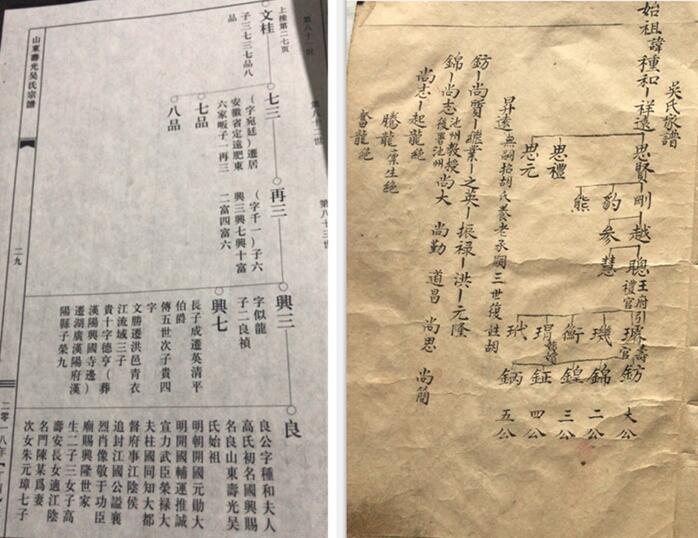 第八十一世
上接第二七页
文桂
子三七三七品八
品
第八十二世
七三
(字宛廷)遷居
安徽省定遠肥東
六家畈子一再三
七品
八品
第八十三世
再三
(字千一)子六
興三興七興十富
二富四富六
興三
字似龍
子二良禎
興七
長子成遷英清平
伯爵
傳五世次子貴四
字
文勝遷洪邑青衣
江流域三子
貴十字德亨(葬
漢陽興國寺邊)
遷湖廣漢陽府漢
陽縣子榮九
良
良公字種和夫人
高氏初名國興賜
名良山東壽光吴
氏始祖
明朝開國元勛大
明開國輔運推誠
宣力武臣榮禄大
夫柱國同知大都
督府事江陰侯
追封江國公謚襄
烈肖像敬于功臣
廟賜興隆世家
生二子三女子高
壽安長女適江陰
名門陳某爲妻
次女朱元璋七子
山東壽光吴氏宗譜
二九
二零一八年
吴氏家譜
始祖諱種和—祥遠—思賢—剛—越—聰王府引禮官—璿壽官—鈁 大公
璣 錦 二公
衡 鍠 三公
瑁 鉦 四公
玳 鈵 五公
慧
參
豹
熊
思禮
思元
昇遠 無嗣招胡氏養老承嗣三世復姓胡
鈁—尚質—繼業—之英—振禄—洪—元隆
錦—尚志池州教授後署池州 尚大 尚勤 道昌 尚思 尚簡
尚志—起龍絶
騰龍廪生絶
奮龍絶